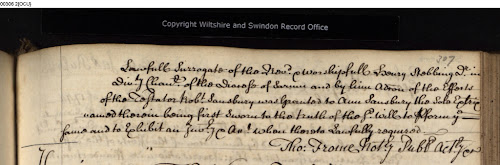 00308 2[OCU]
Copyright Wiltshire and Swindon Record Office
307
Lawfull Surrogate of the Rever. & worshipfull Henry Stebbing Dr. in
Divty Chanr. of the Diocese of Sarum and by him Admon of the Effects
of the Testator Robt. Sansbury was Granted to Ann Sansbury the Sole Extrix
named therein being first Sworn to the truth of the sd. Will to pform ye
same and to Exhibit an Invry & Act. when thereto Lawfully required
Tho: Frome Noty Publ.